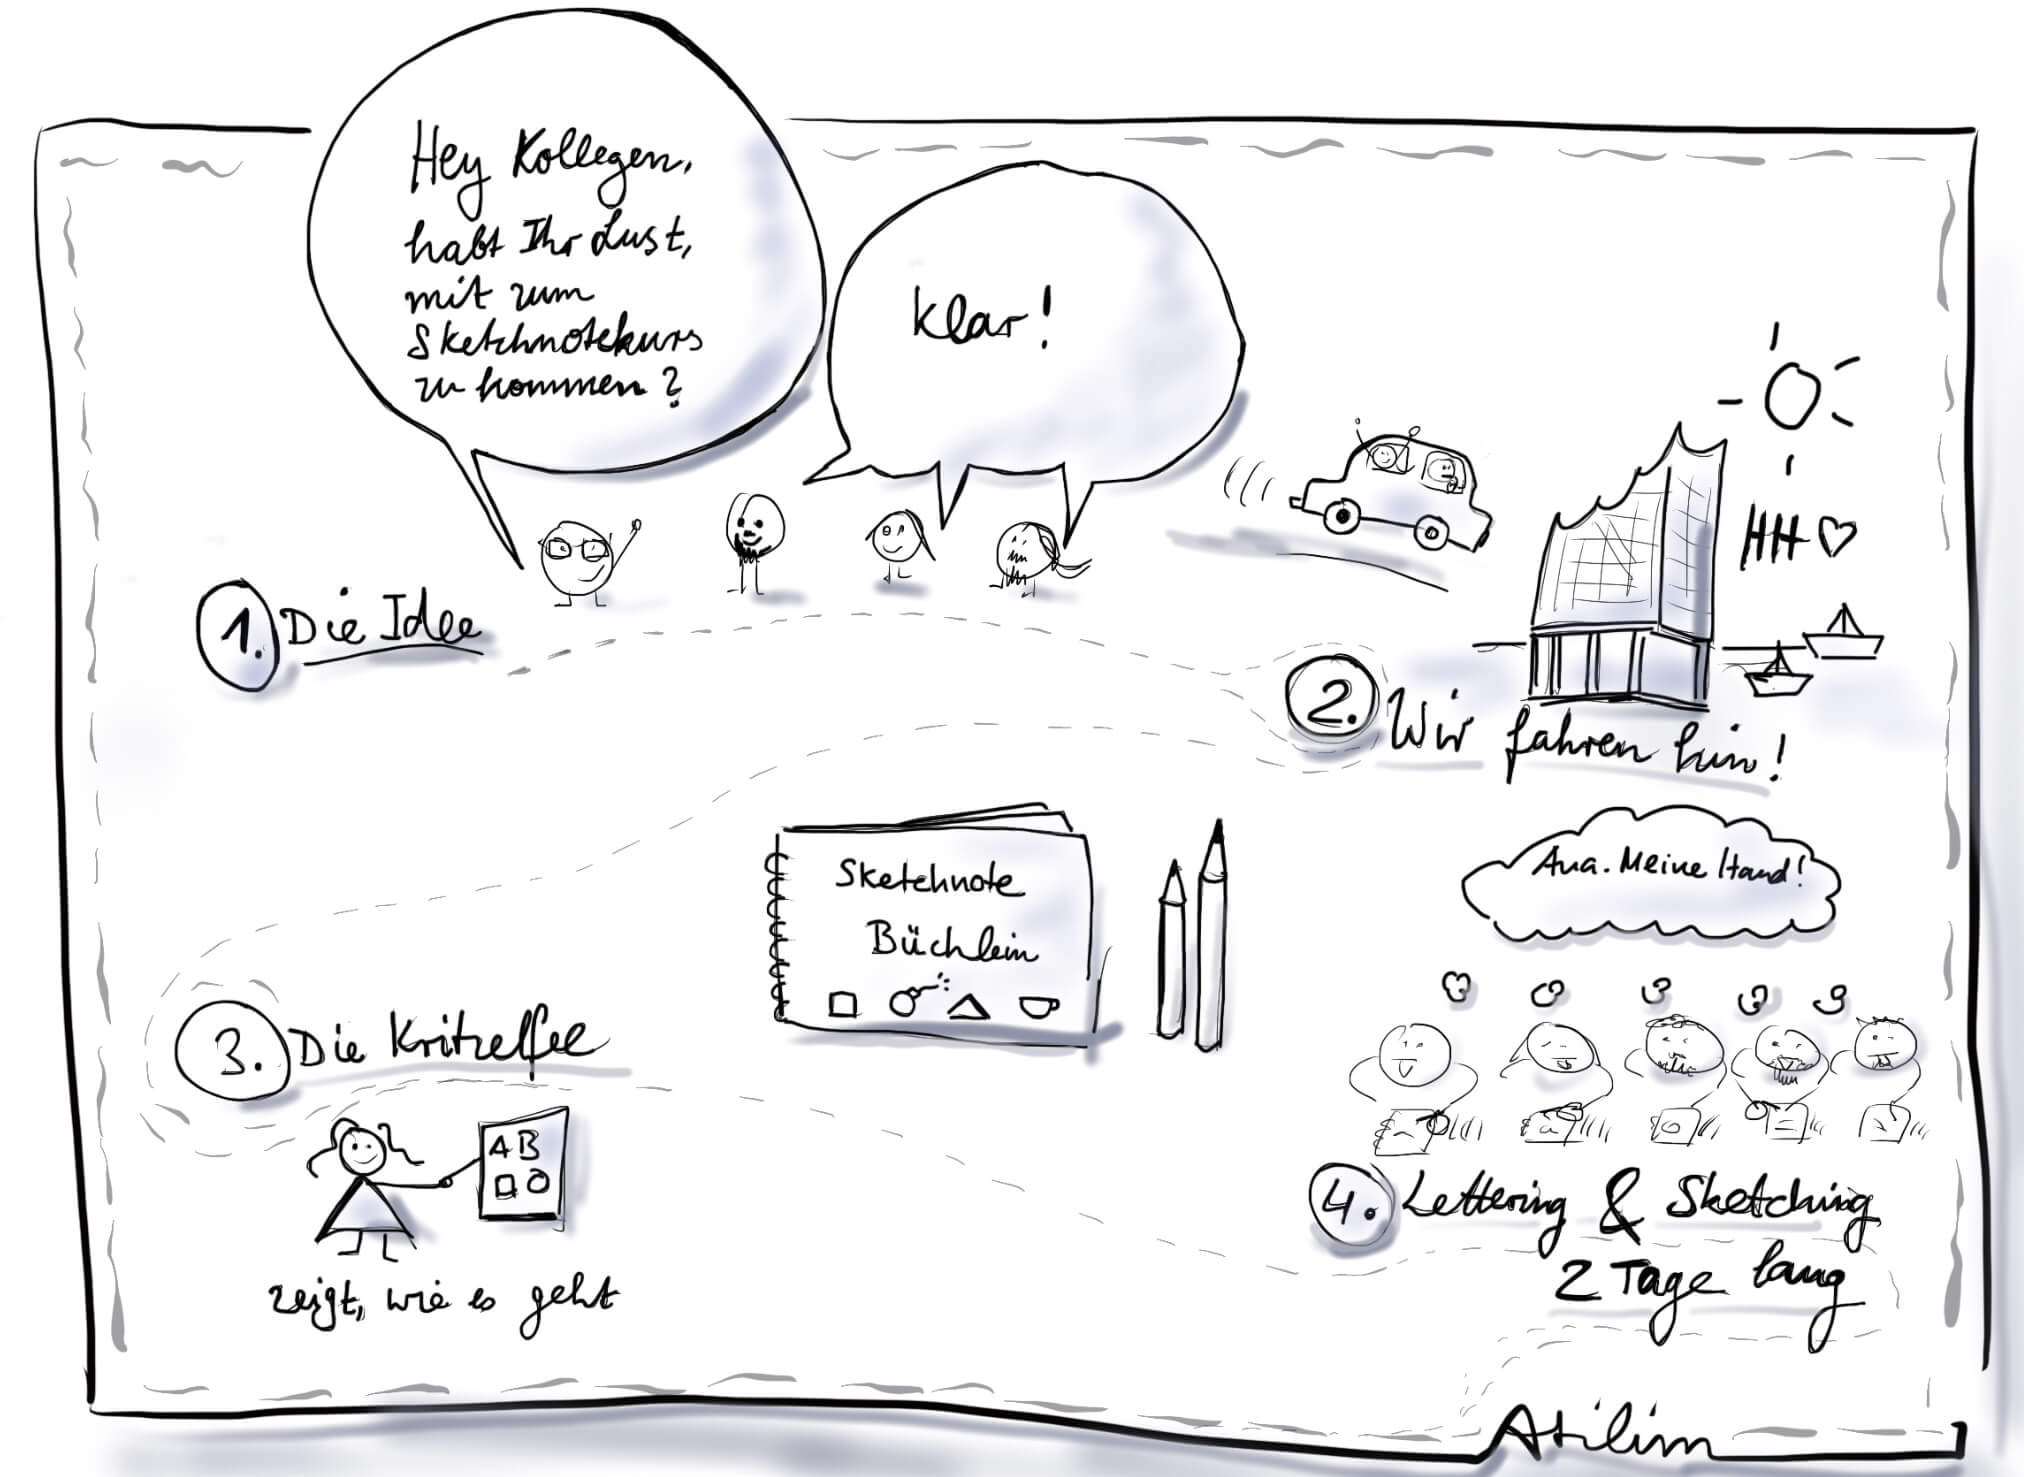 Hey Kollegen,
habt Ihr Lust,
mit zum
Sketchnotekurs
zu kommen?
Klar!
1. Die Idee
HH
2. Wir fahren hin!
Sketchnote
Büchlein
3. Die Kritzelfee
AB
zeigt, wie es geht
Aua. Meine Hand!
4. Lettering & Sketching
2 Tage lang
Atilim